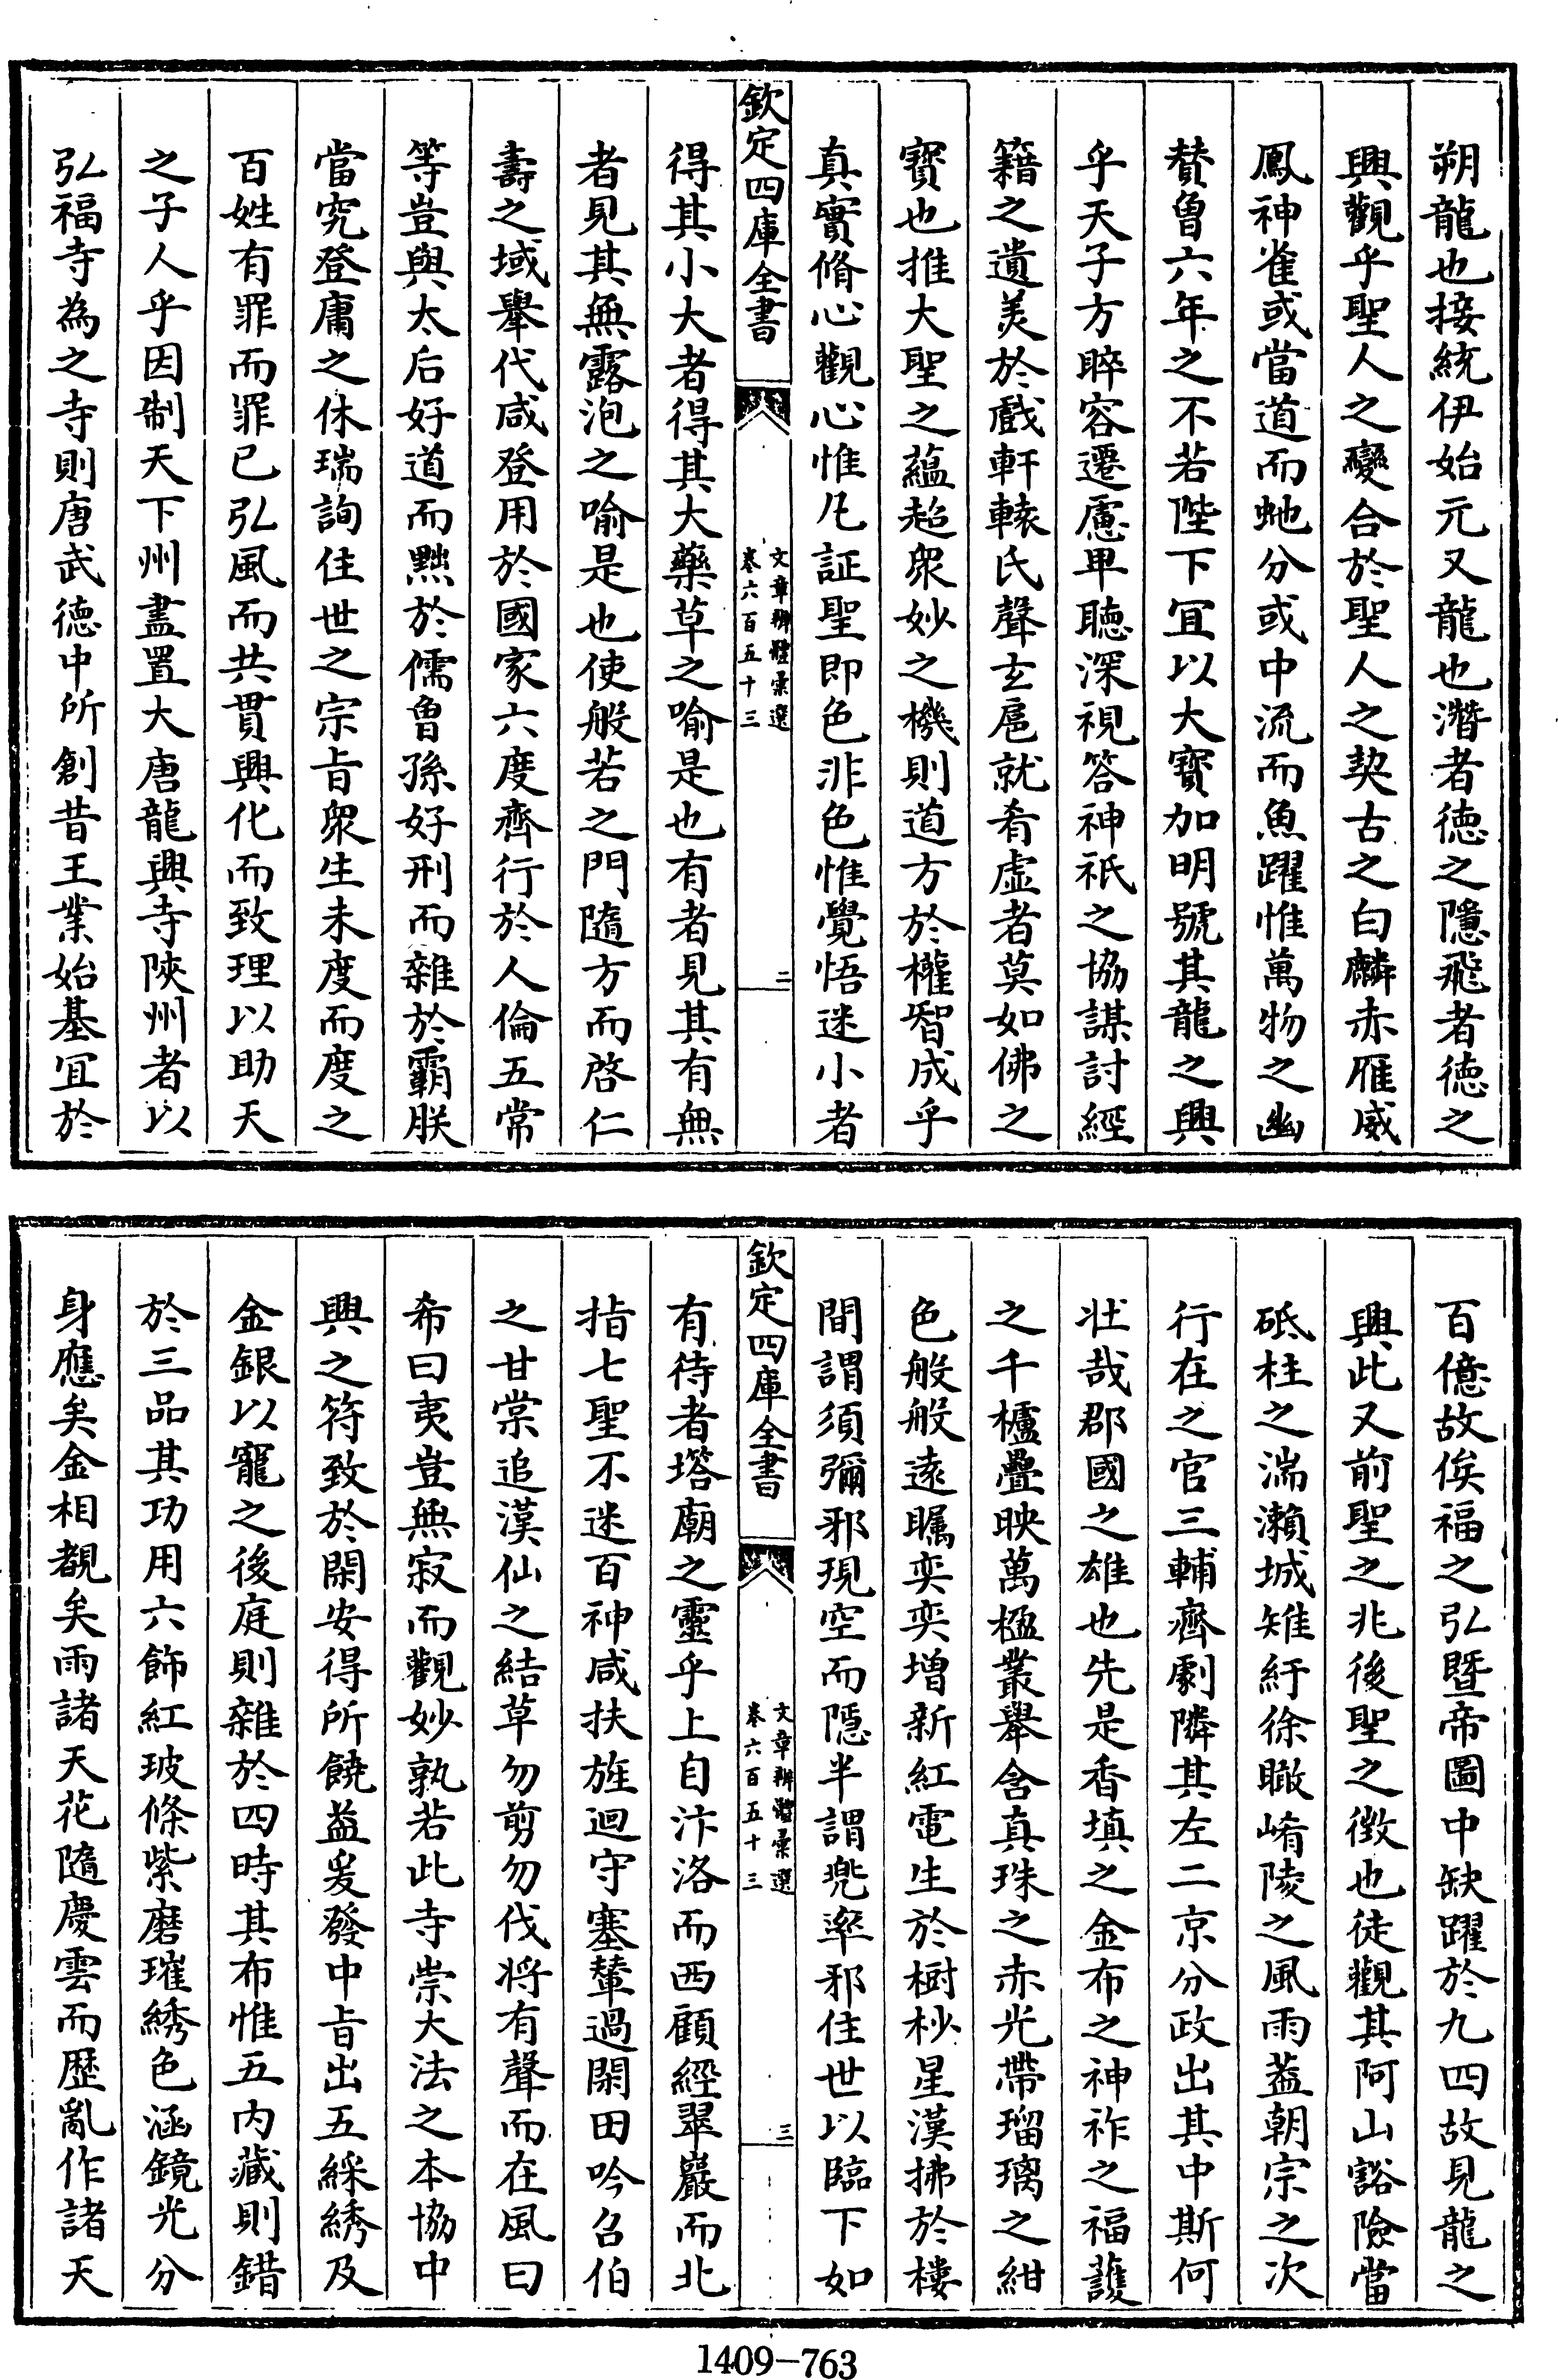 朔龍也接統伊始元又龍也潛者徳之隱飛者徳之
興觀乎聖人之變合於聖人之契古之白麟赤雁威
鳳神雀或當道而虵分或中流而魚躍惟萬物之幽
賛魯六年之不若陛下宜以大寳加明號其龍之興
乎天子方睟容遷慮卑聽深視答神祇之協謀討經
籍之遺美於戲軒轅氏聲玄扈就肴虛者莫如佛之
寳也推大聖之藴超衆妙之機則道方於權智成乎
真實脩心觀心惟凡証聖即色非色惟覺悟迷小者
欽定四庫全書
文章辨體彚選
卷六百五十三
二
得其小大者得其大藥草之喻是也有者見其有無
者見其無露泡之喻是也使般若之門隨方而啓仁
壽之域舉代咸登用於國家六度齊行於人倫五常
等豈與太后好道而黜於儒魯孫好刑而雜於霸朕
當究登庸之休瑞詢住世之宗旨衆生未度而度之
百姓有罪而罪已弘風而共貫興化而致理以助天
之子人乎因制天下州盡置大唐龍興寺陜州者以
弘福寺為之寺則唐武徳中所創昔王業始基宜於
百億故俟福之弘暨帝圖中缺躍於九四故見龍之
興此又前聖之兆後聖之徴也徒觀其阿山谽險當
砥柱之湍瀨城雉紆徐瞰崤陵之風雨葢朝宗之次
行在之官三輔齊劇隣其左二京分政出其中斯何
壮哉郡國之雄也先是香填之金布之神祚之福䕶
之千櫨疊映萬楹叢舉含真珠之赤光帶瑠璃之紺
色般般逺矚奕奕増新紅電生於樹杪星漢拂於樓
間謂須彌邪現空而隱半謂兠率邪住世以臨下如
欽定四庫全書
文章辨體彚選
卷六百五十三
三
有待者塔廟之靈乎上自汴洛而西顧經翠巖而北
指七聖不迷百神咸扶旌迴守塞輦過閑田吟召伯
之甘棠追漢仙之結草勿剪勿伐将有聲而在風曰
希曰夷豈無寂而觀妙孰若此寺崇大法之本協中
興之符致於閑安得所饒益爰發中旨出五綵綉及
金銀以寵之後庭則雜於四時其布惟五内藏則錯
於三品其功用六飾紅玻條紫磨璀綉色涵鏡光分
身應矣金相覩矣雨諸天花隨慶雲而歴亂作諸天
1409-763